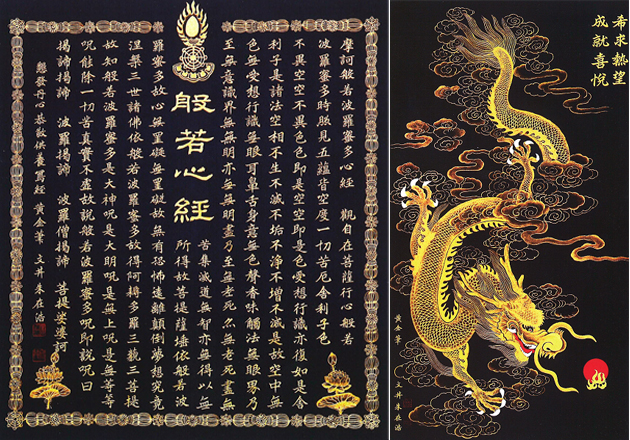 摩訶般若波羅蜜多心經 觀自在菩薩行深般若
波羅蜜多時照見五蘊皆空度一切苦厄舍利子色
不異空空不異色色即是空空即是色受想行識亦復如是舍
利子是諸法空相不生不滅不垢不淨不增不減是故空中無
色無受想行識無眼耳鼻舌身意無色聲香味觸法無眼界乃
至無意識界無無明亦無無明盡乃至無老死亦無老死盡無
般若心經
苦集滅道無智亦無得以無
所得故菩提薩埵依般若波
羅蜜多故心無罣礙無罣礙故無有恐怖遠離顛倒夢想究竟
涅槃三世諸佛依般若波羅蜜多故得阿耨多羅三藐三菩提
故知般若波羅蜜多是大神呪是大明呪是無上呪是無等等
呪能除一切苦真實不虛故說般若波羅蜜多呪即說呪曰
揭諦揭諦 波羅揭諦 波羅僧揭諦 菩提娑婆訶
心 恭敬供養寫經 黃金筆 立井 朱在浩
希求熱望
成就喜悅
黃金筆 立井 朱在浩